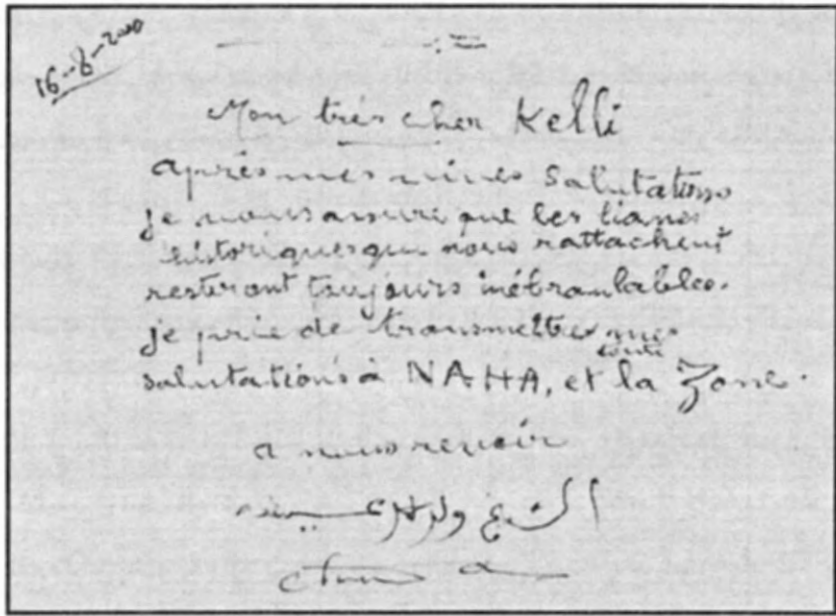 16-8-2000
Mon très cher Kelli
après mes vives salutations
je vous assure que les lianes
historiques qui nous rattachent
resteront toujours inébranlables.
je prie de transmettre mes
salutations à NAHA, et toute la Zone.
a nous revoir
الشيخ ولد